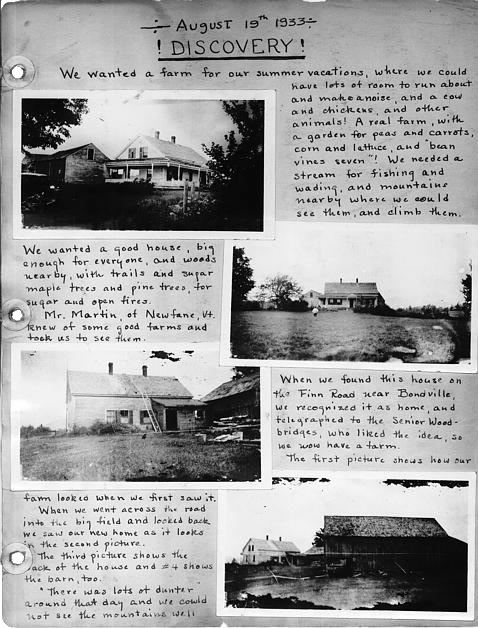 ÷ August 19th 1933 ÷
! DISCOVERY !
We wanted a farm for our summer vacations, where we could
have lots of room to run about
and make a noise, and a cow
and chickens, and other
animals! A real farm, with
a garden for peas and carrots,
corn and lettuce, and "bean
vines seven"! We needed a
stream for fishing and
wading, and mountains
nearby where we could
see them, and climb them.
We wanted a good house, big
enough for everyone, and woods
nearby, with trails and sugar
maple trees and pine trees, for
sugar and open fires.
Mr. Martin, of Newfane, Vt.
knew of some good farms and
took us to see them.
When we found this house on
the Finn Road near Bondville,
we recognized it as home, and
telegraphed to the Senior Wood-
bridges, who liked the idea, so
we now have a farm.
The first picture shows how our
farm looked when we first saw it.
When we went across the road
into the big field and looked back
we saw our new home as it looks
in the second picture.
The third picture shows the
back of the house and #4 shows
the barn, too.
"There was lots of dunter
around that day and we could
not see the mountains well